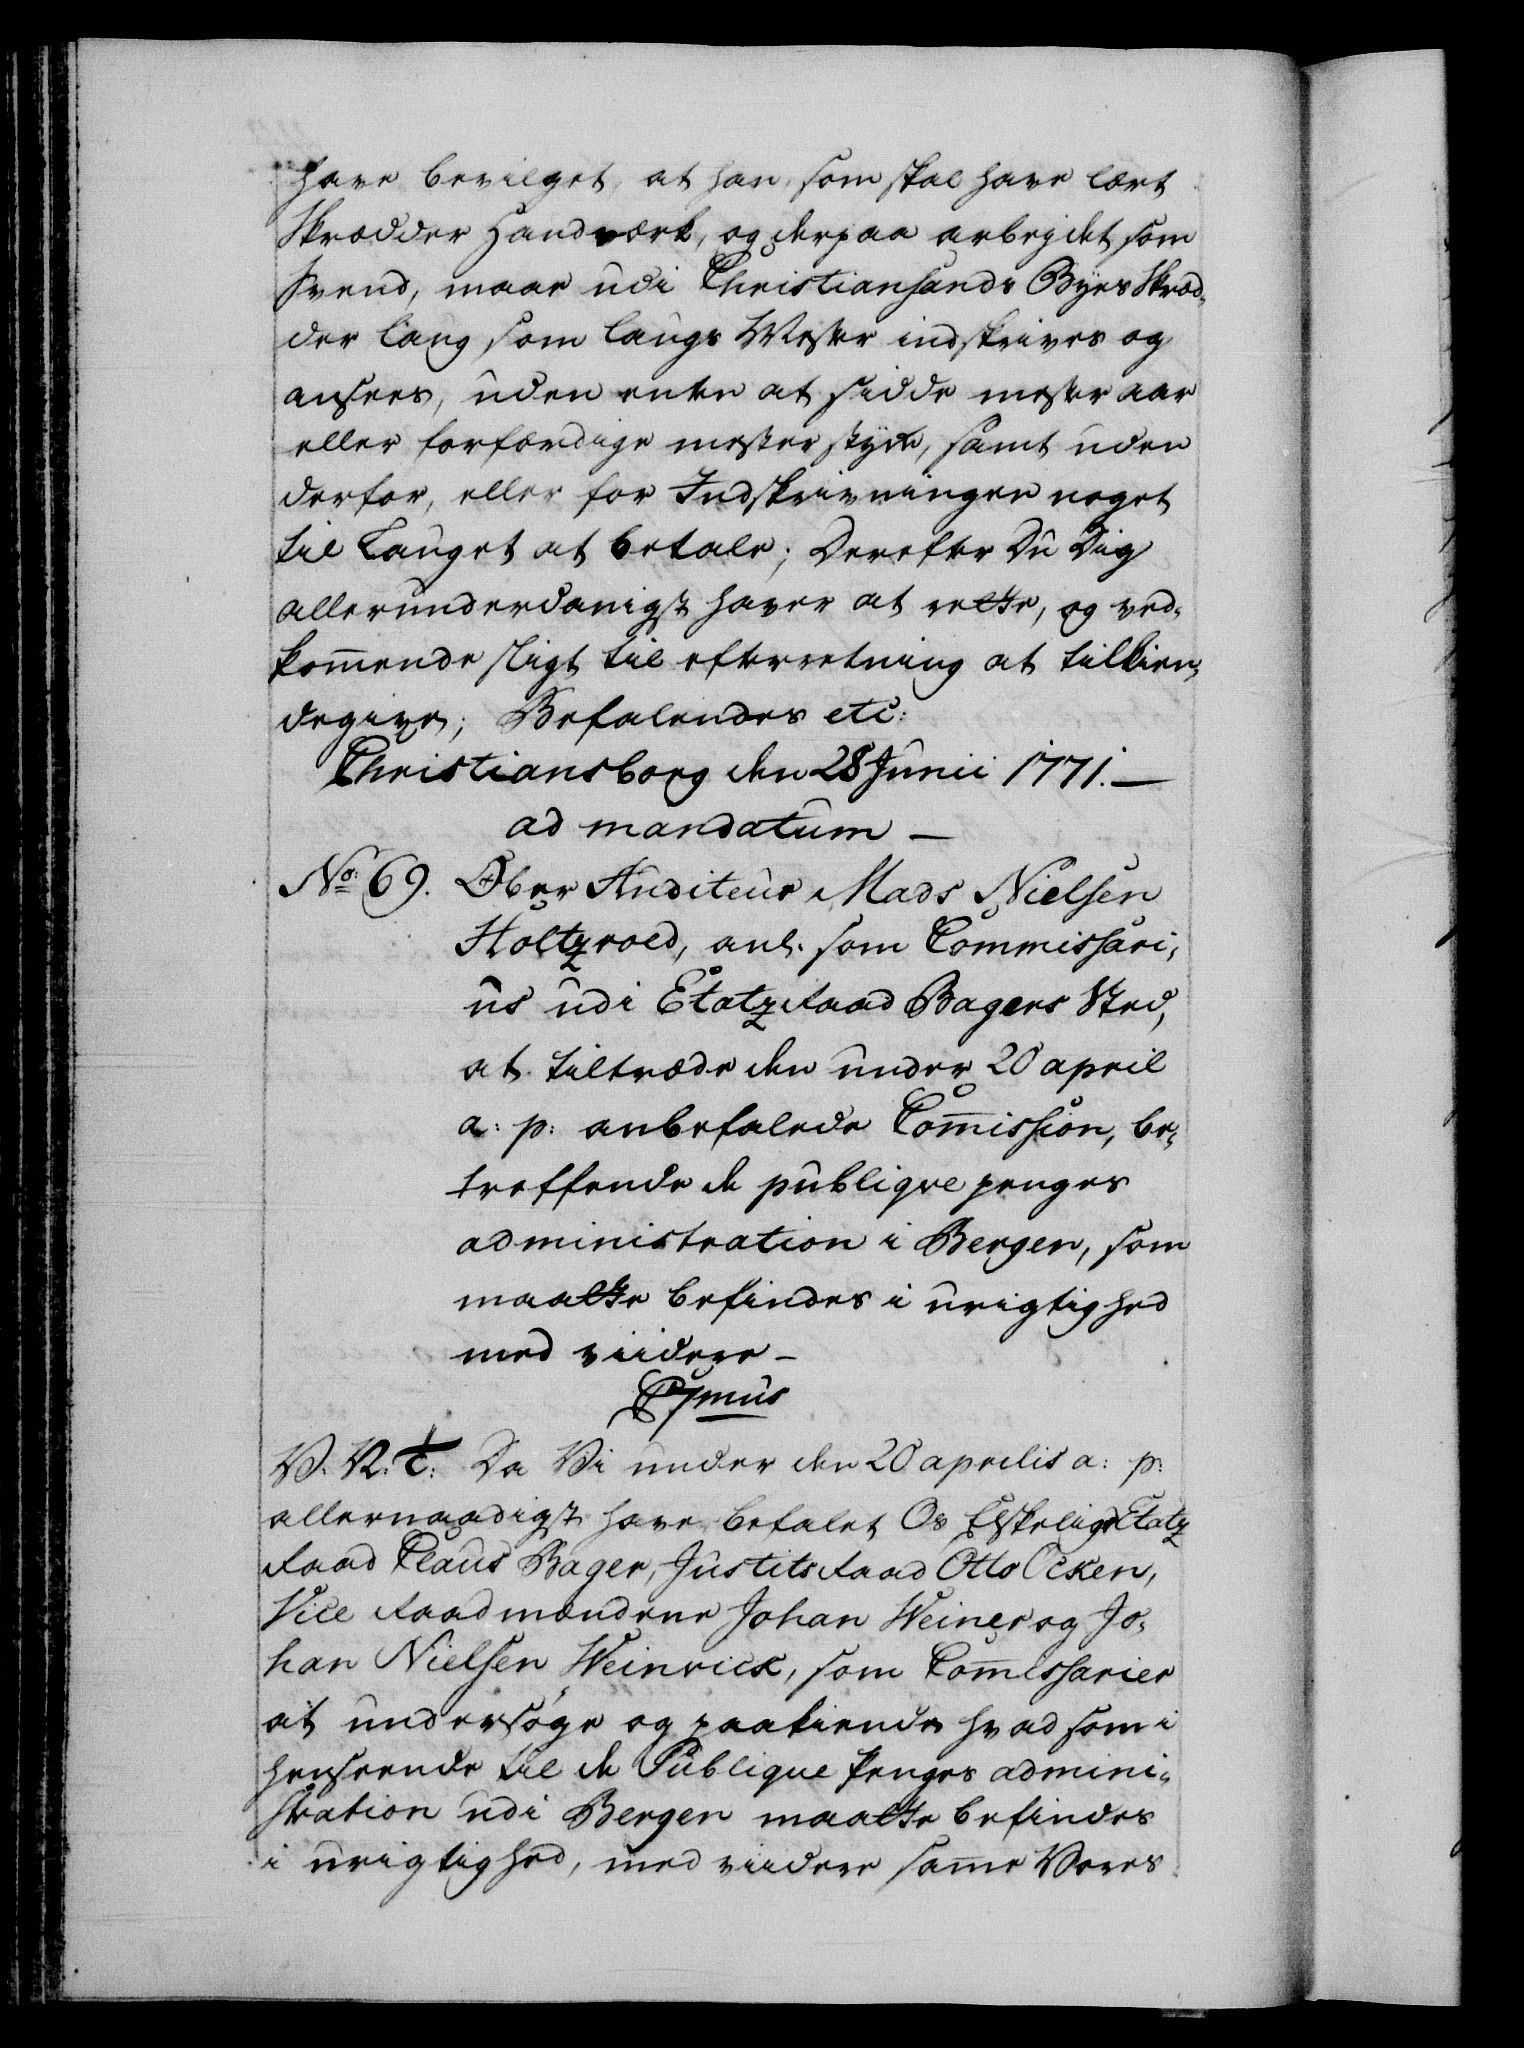 have bevilget, at han, som skal have lært
Skrædder Handværk, og derpaa arbejdet som
Svend, maae udi Christiansands Byes Skræd-
der laug som laugs Mester indskrives og
ansees, uden enten at sidde mester aar
eller forfærdige mester stycke, samt uden
derfor, eller for Indskrivningen noget
til Lauget at betale; Derefter Du Dig
allerunderdanigst haver at rette, og ved-
kom̅ende sligt til efterretning at tilkien-
degive; Befalendes etc:
Christiansborg den 28 Junii 1771. —
ad mandatum —
No: 69. Ober Auditeur Mads Nielsen
Holtzroed, anl. som Commissari-
us udi EtatzRaad Bagers Sted,
at tiltræde den under 20 april
a: p: anbefalede Com̅ission, be-
treffende de publiqve penges
administration i Bergen, som
maatte befindes i urigtighed
med viidere —
V. V. T: Da Vi under den 20 aprilis a: p:
allernaadigst have befalet Os Elskelige Etatz
Raad Claus Bager, Justits Raad Otto Ocken,
Vice Raadmændene Johan Weiner og Jo-
han Nielsen Weinrick, som Com̅issarier
at undersøge og paakiende hvad som i
henseende til de Publique Penges admini-
stration udi Bergen maatte befindes
i urigtighed, med viidere sam̅e Vores